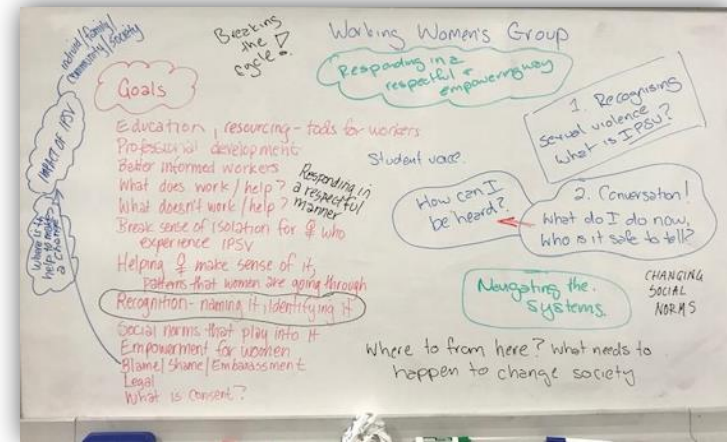 Working Women's Group
Breaking
the
cycle!
individ/family/
community/society
IMPACT OF IPSV
Where is the
help to make
a change
Responding in a
respectful +
empowering way
Goals
Education, resourcing - tools for workers
Professional development
Better informed workers
What does work/help?
What doesn't work/help?
Break sense of isolation for ♀ who
experience IPSV
Helping ♀ make sense of it,
patterns that women are going through
Recognition - naming it, identifying it
Social norms that play into it
Empowerment for women
Blame/Shame/Embarassment
Legal
What is consent?
Responding in
a respectful
manner
Student voice.
1. Recognising
sexual violence
What is IPSV?
How can I
be heard?
2. Conversation!
What do I do now,
Who is it safe to tell?
Navigating the
Systems
CHANGING
SOCIAL
NORMS
Where to from here? What needs to
happen to change society